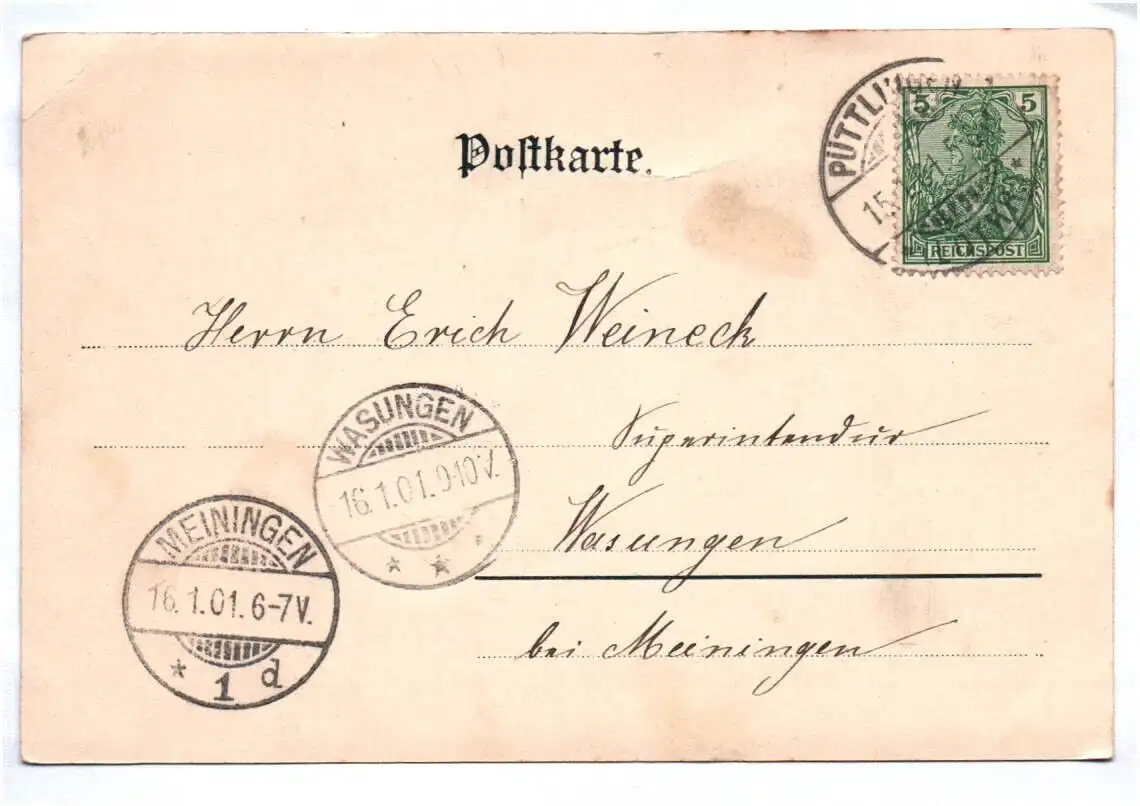 Postkarte.
PÜTTLINGEN
15.
5 5
REICHSPOST
Herrn Erich Weineck
Superintendur
Wasungen
bei Meiningen
WASUNGEN
16.1.01.9-10V.
* * *
MEININGEN
16.1.01.6-7V.
* 1 d